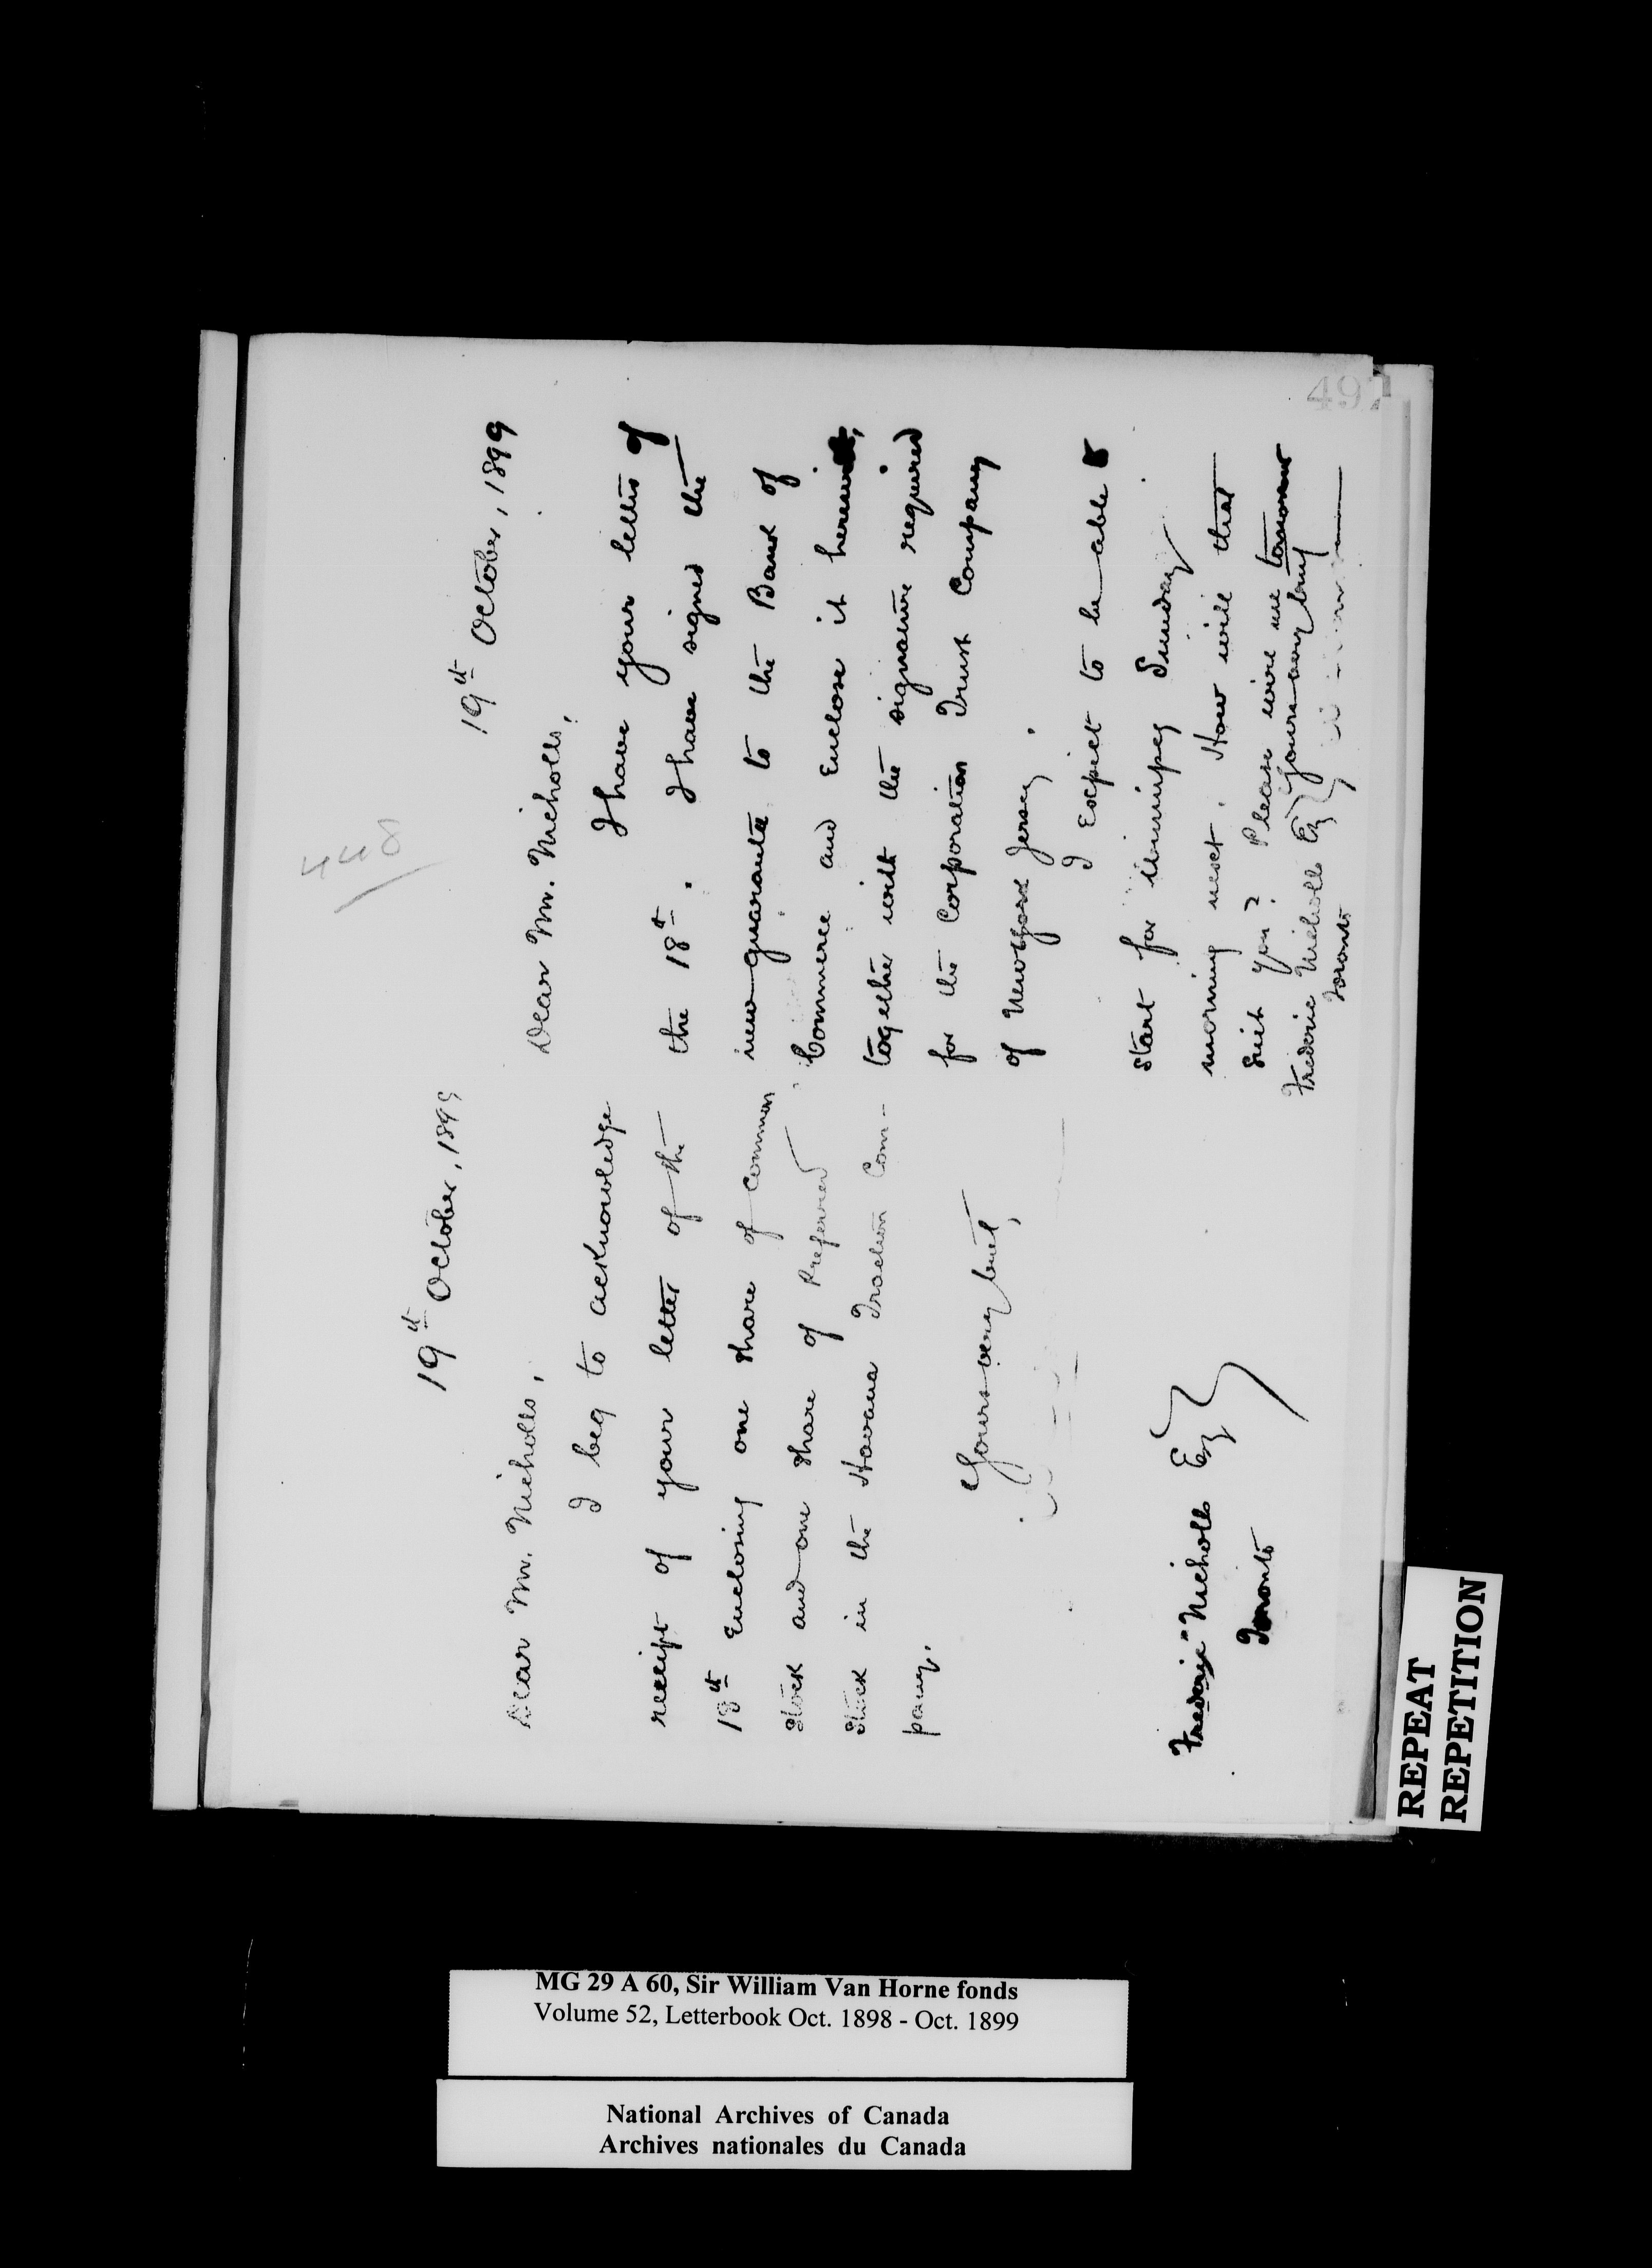 448
497
19th October, 1899
Dear Mr. Nicholls,
I beg to acknowledge
receipt of your letter of the
18th enclosing one share of common
stock and one share of preferred
stock in the Havana Traction Com-
pany.
Yours very truly,
Frederic Nicholls Esq
Toronto
19th October, 1899
Dear Mr. Nicholls,
I have your letter of
the 18th. I have signed the
new guarantee to the Bank of
Commerce and enclose it herewith,
together with the signature required
for the Corporation Trust Company
of New York Jersey.
I expect to be able to
start for Winnipeg Sunday
morning next. How will that
suit you? Please wire me tomorrow
Yours very truly
Frederic Nicholls Esq
Toronto
REPEAT
REPETITION
MG 29 A 60, Sir William Van Horne fonds
Volume 52, Letterbook Oct. 1898 - Oct. 1899
National Archives of Canada
Archives nationales du Canada